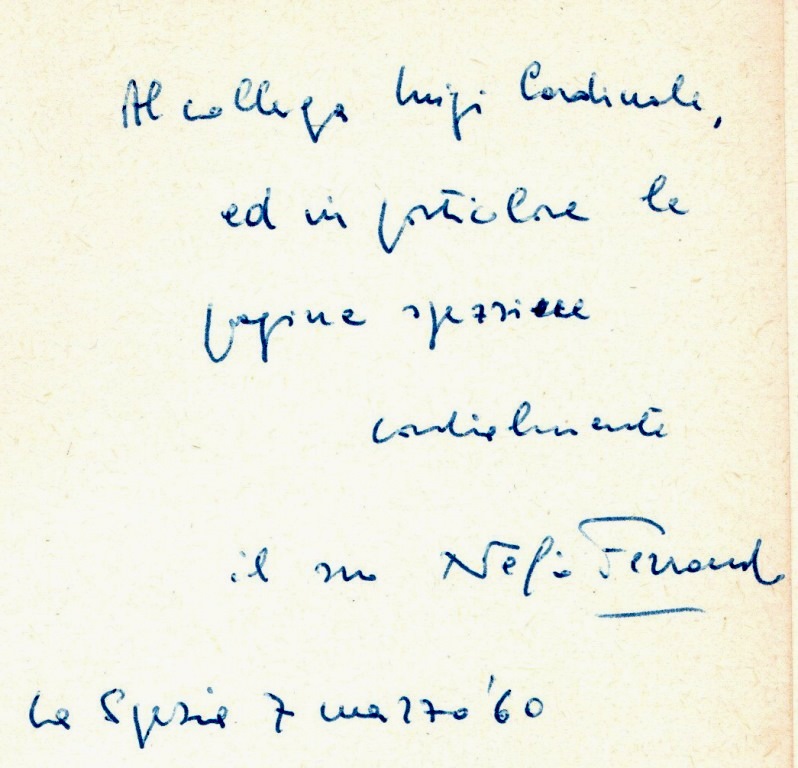 Al collega Luigi Cardinale,
ed in particolare le
pagine spezzine
cordialmente
il suo Nelio Ferrando
La Spezia 7 marzo '60